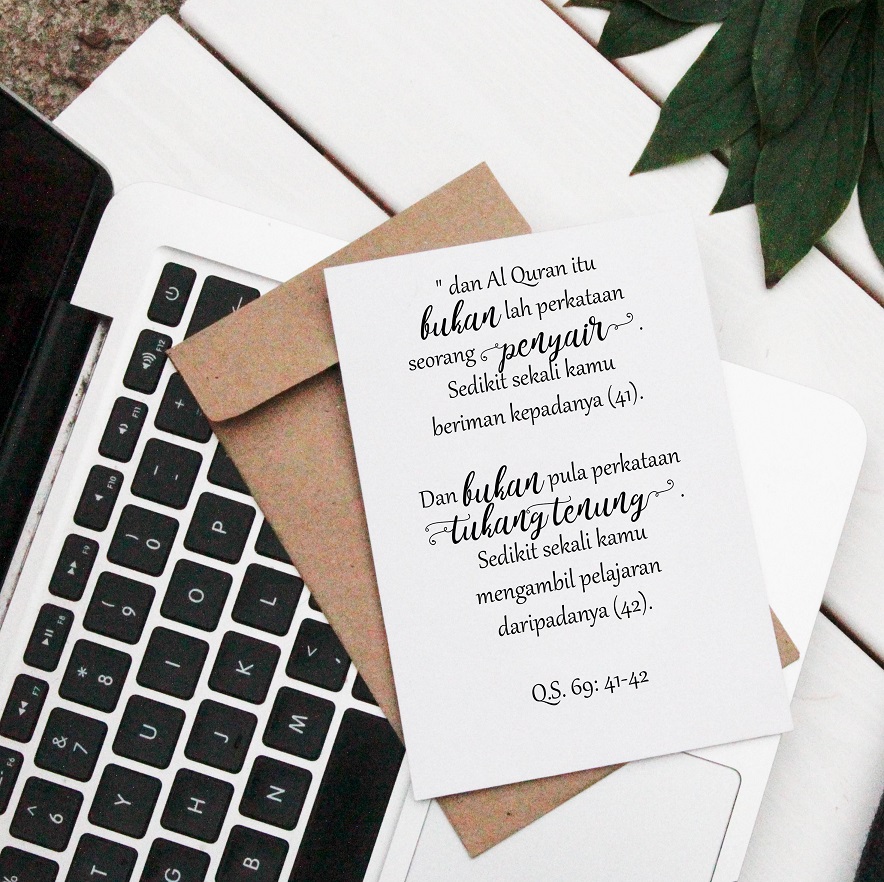 " dan Al Quran itu
bukan lah perkataan
seorang penyair .
Sedikit sekali kamu
beriman kepadanya (41).
Dan bukan pula perkataan
tukang tenung .
Sedikit sekali kamu
mengambil pelajaran
daripadanya (42).
Q.S. 69: 41-42
F12
F11
F10
F9
F8
F7
+
-
) 0
P
( 9
O
L
* 8
I
K
< ,
& 7
U
J
M
^ 6
Y
H
N
T
G
B